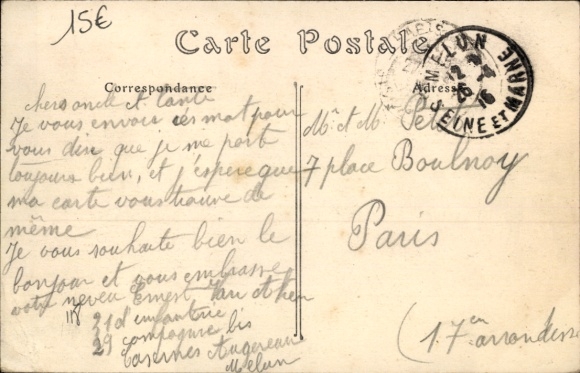 15€
Carte Postale
Correspondance
Adresse
MELUN
12
26 - 4
16
SEINE ET MARNE
chers oncle et tante
Je vous envois ces mot pour
vous dire que je me port
toujours bien, et j'espere que
ma carte vous trouve de
même
Je vous souhaite bien le
bonjour et vous embrasse
votre neveu Ernest
118
31 d'infanterie
29 compagnie bis
Casernes Augereau
Melun
Mr et M Petit
7 place Boulnoy
Paris
(17em arrondiss